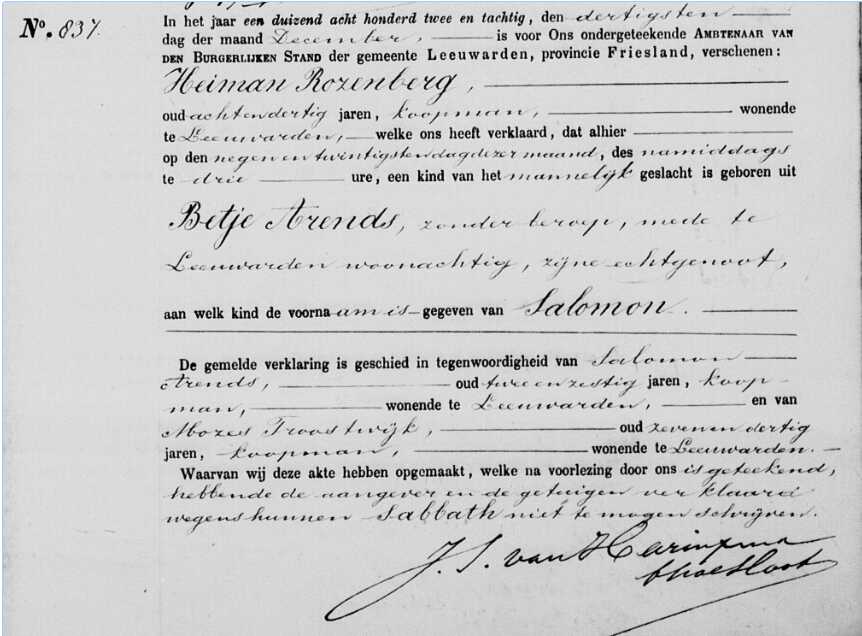 No. 837.
In het jaar een duizend acht honderd twee en tachtig, den dertigsten
dag der maand December, is voor Ons ondergeteekende AMBTENAAR VAN
DEN BURGERLIJKEN STAND der gemeente Leeuwarden, provincie Friesland, verschenen:
Heiman Rozenberg,
oud achtendertig jaren, koopman, wonende
te Leeuwarden, welke ons heeft verklaard, dat alhier
op den negen en twintigsten dag dezer maand, des namiddags
te drie ure, een kind van het mannelijk geslacht is geboren uit
Betje Arends, zonder beroep, mede te
Leeuwarden woonachtig, zijne echtgenoot,
aan welk kind de voornaam is gegeven van Salomon.
De gemelde verklaring is geschied in tegenwoordigheid van Salomon
Arends, oud twee en zestig jaren, koop-
man, wonende te Leeuwarden, en van
Mozes Troostwijk, oud zeven en dertig
jaren, koopman, wonende te Leeuwarden.
Waarvan wij deze akte hebben opgemaakt, welke na voorlezing door ons is geteekend,
hebbende de aangever en de getuigen verklaard
wegens hunnen Sabbath niet te mogen schrijven.
J. S. van Harinxma
thoe Slooten